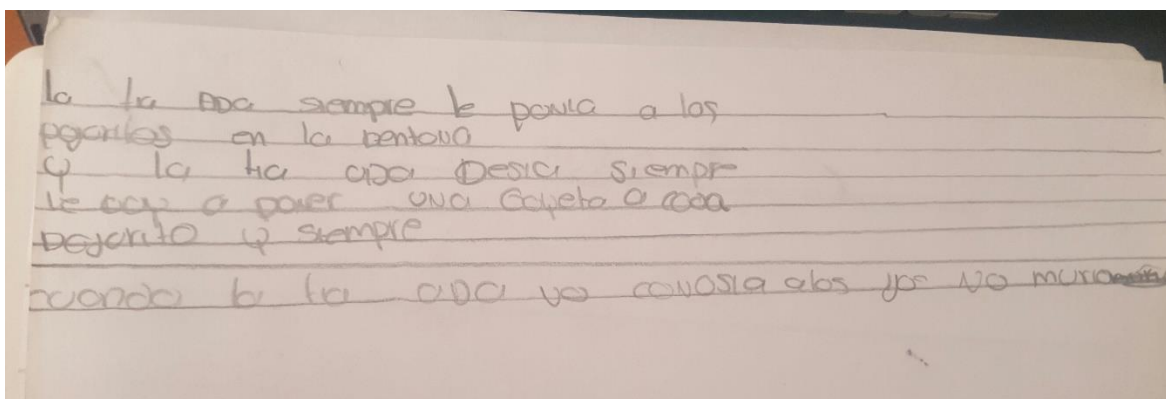 la tia ADA siempre le ponia a los
pajaritos en la bentana
y la tia ADA Desia siempre
le a poner una Galleta a cada
pajarito y siempre
cuando la tia ADA no conosia a los no